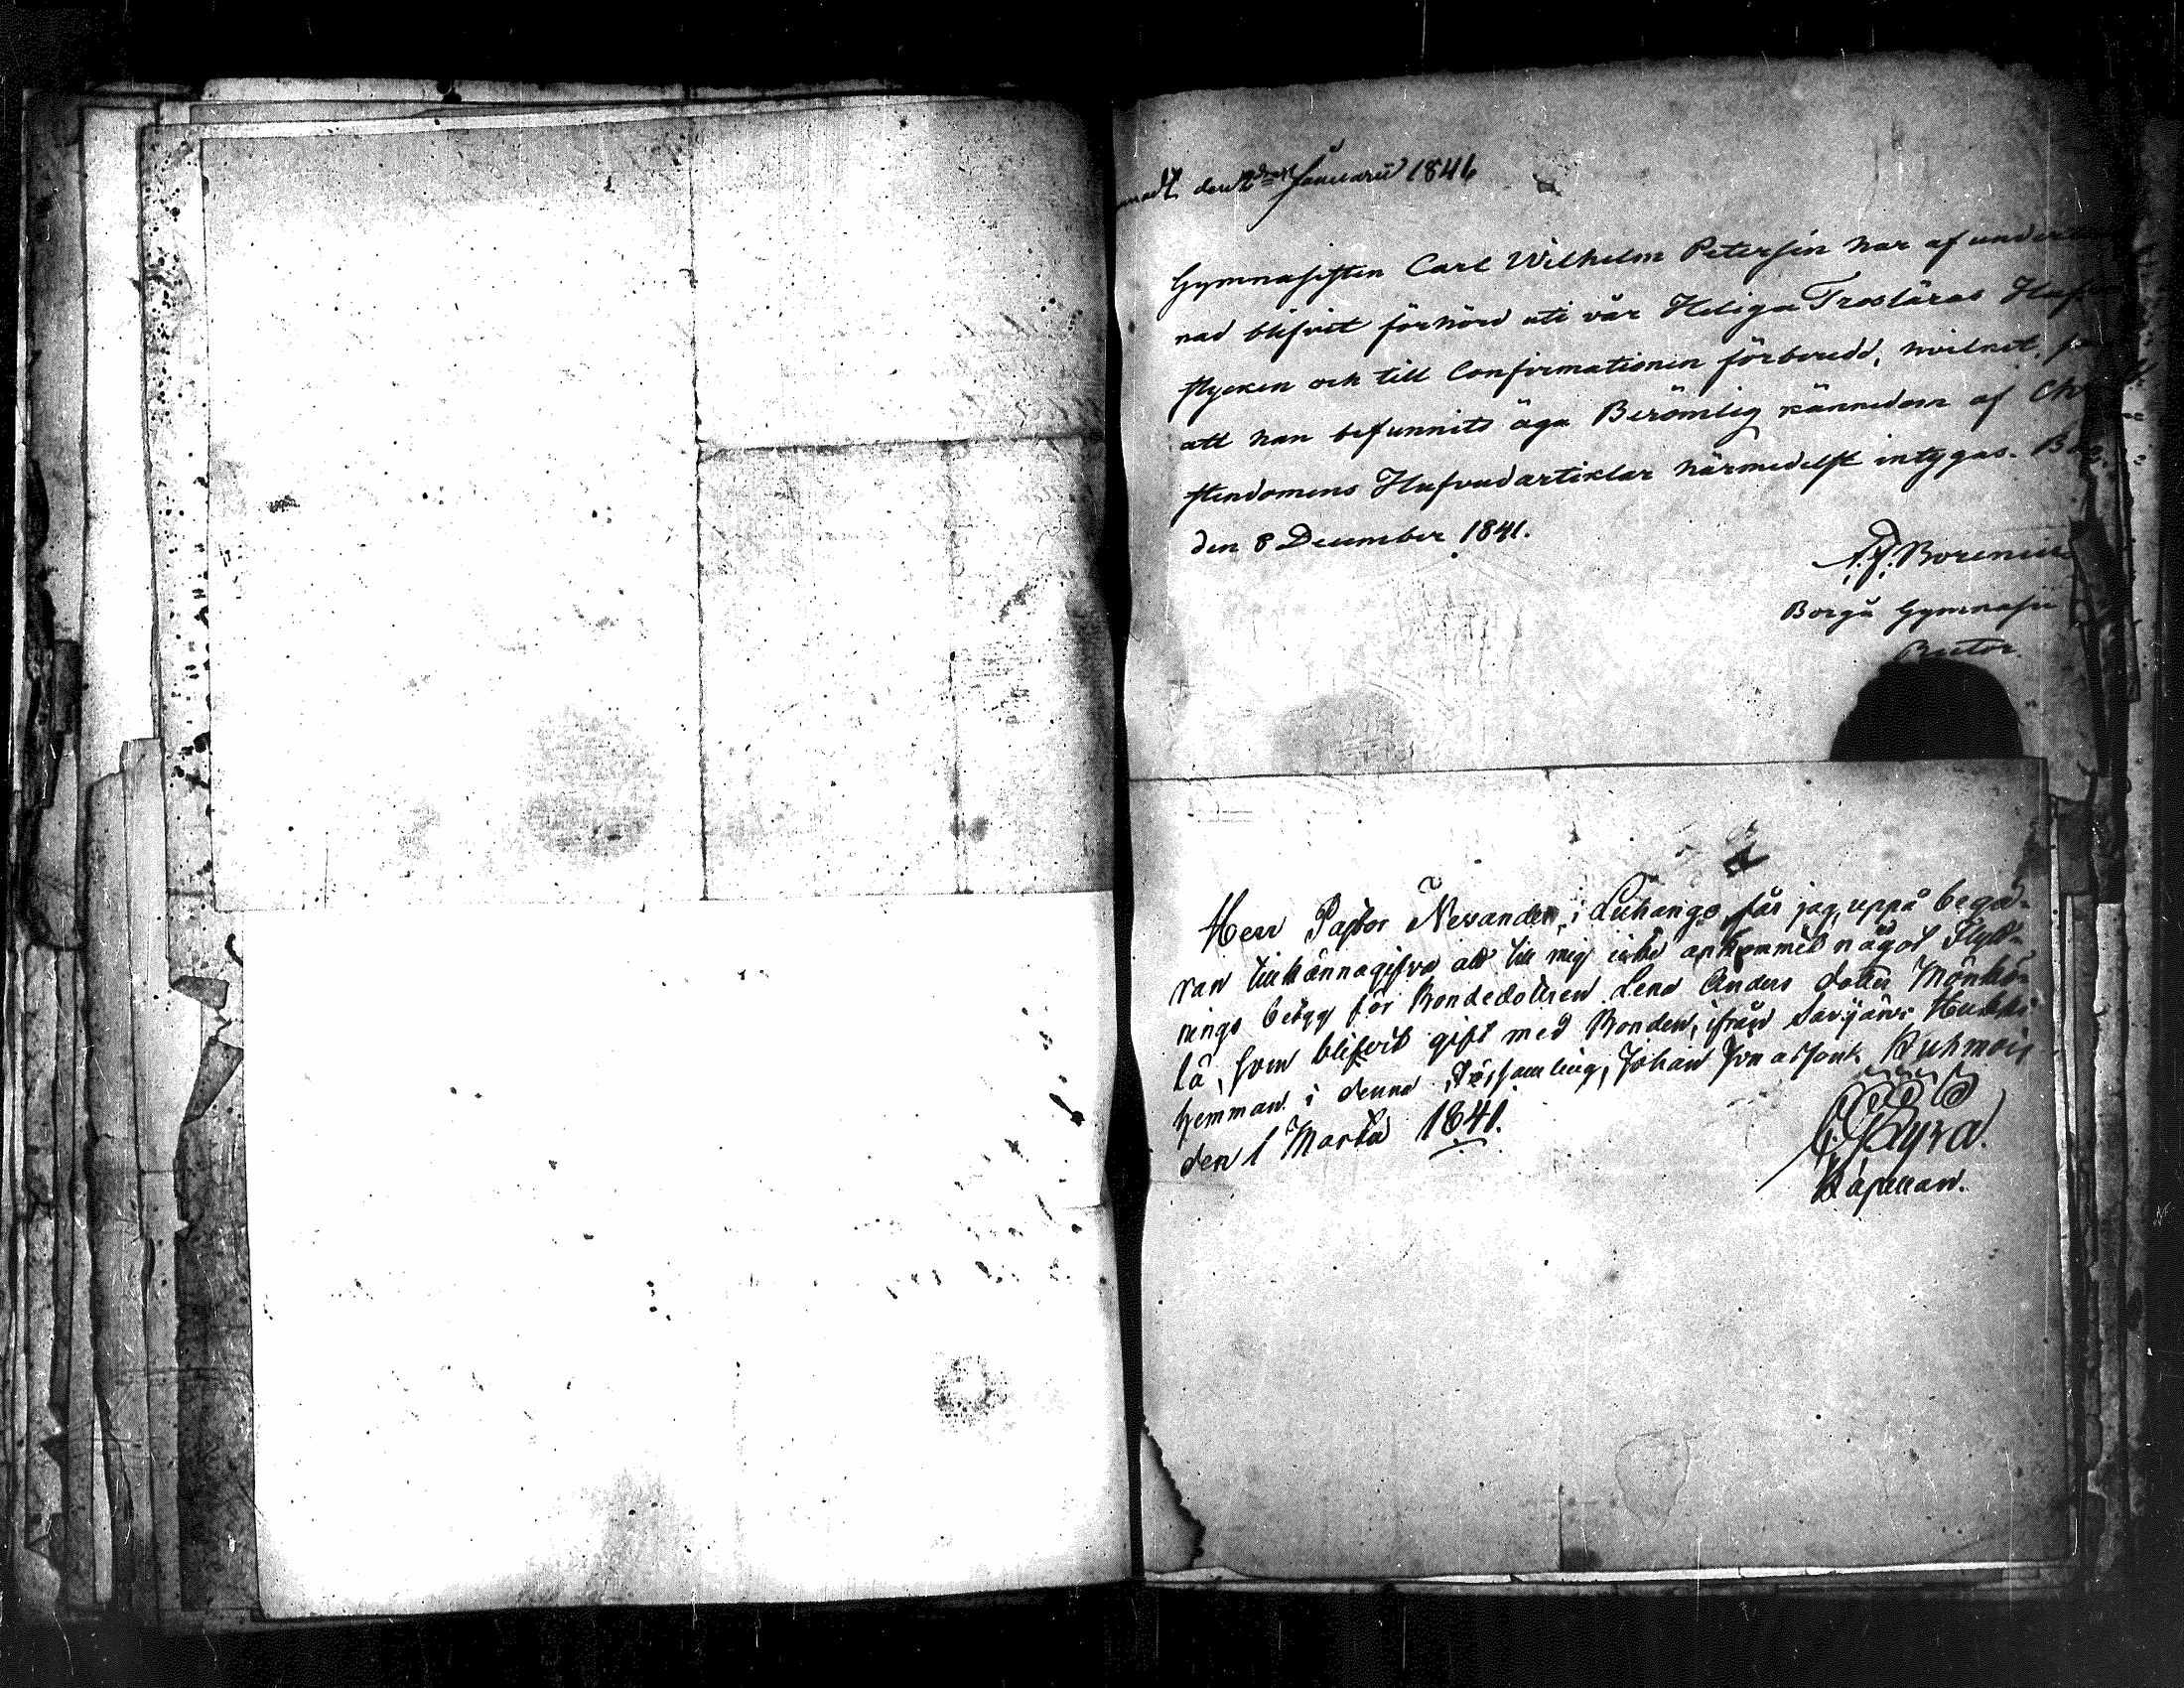 den 2dra Januarii 1841
Gymnasisten Carl Wilhelm Petersén har af underteck
nad blifvit förhörd uti vår Heliga Trosläras Huf
stycken och till Confirmationen förberedd, hvilket,
att han befunnits äga Berömlig kännedom af Chri
stendomens Hufvudartiklar härmedelst intygas. Bor
den 8 December 1841.
Borenius
Borgå Gymnasii
Rector.
Herr Pastor Nevander i Luhango får jag, uppå begä-
ran tillkännagifva att till mig icke ankommit något Flytt-
nings betyg för Bondedottren Lena Anders dotter Mönkö-
lä, som blifvit gift med Bonden, ifrån Sarjärvi Heikki
hemman i denna Församling, Johan Jonasson. Kuhmois
den 1 Martii 1841.
Lyra.
Kapellan.